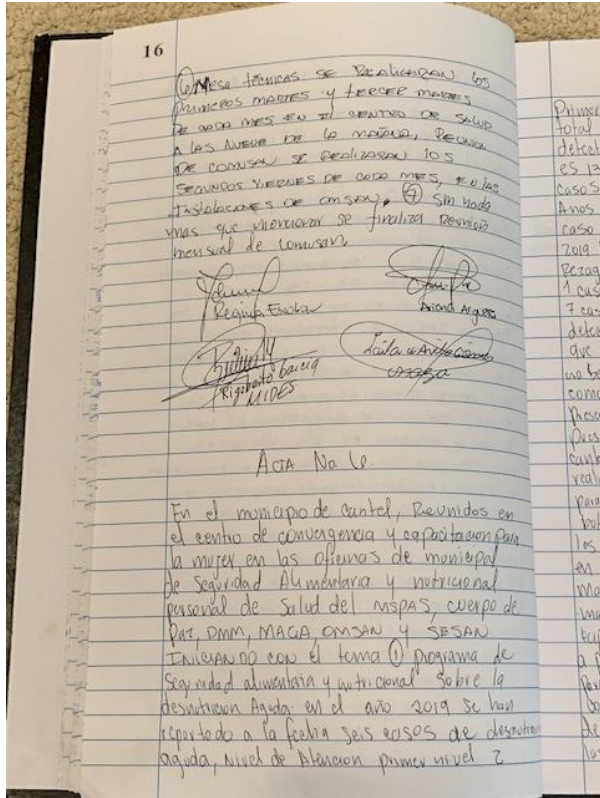 16
⑥ Mesa técnicas se realizaran los
primeros martes y tercer martes
de cada mes en el centro de salud
a las nueve de la mañana, reunion
de comusan se realizaran los
segundos viernes de cada mes, en las
instalaciones de omsan. ⑦ sin nada
mas que mencionar se finaliza reunion
mensual de comusan.
Regina Escobar
Rigoberto Garcia
MIDES
Acta No 6.
En el municipio de Cantel, Reunidos en
el centro de convergencia y capacitacion para
la mujer en las oficinas de municipal
de seguridad Alimentaria y nutricional
personal de salud del MSPAS, cuerpo de
Paz, DMM, MAGA, OMSAN y SESAN
INICIANDO con el tema ① programa de
seguridad alimentaria y nutricional sobre la
desnutricion Aguda en el año 2019 se han
reportado a la fecha seis casos de desnutricion
aguda, Nivel de Atencion primer nivel 2
Primer
total
detect
es 12
casos
Anos
caso
2019
Rezag
1 cas
7 cas
que
no
como
para
los
en